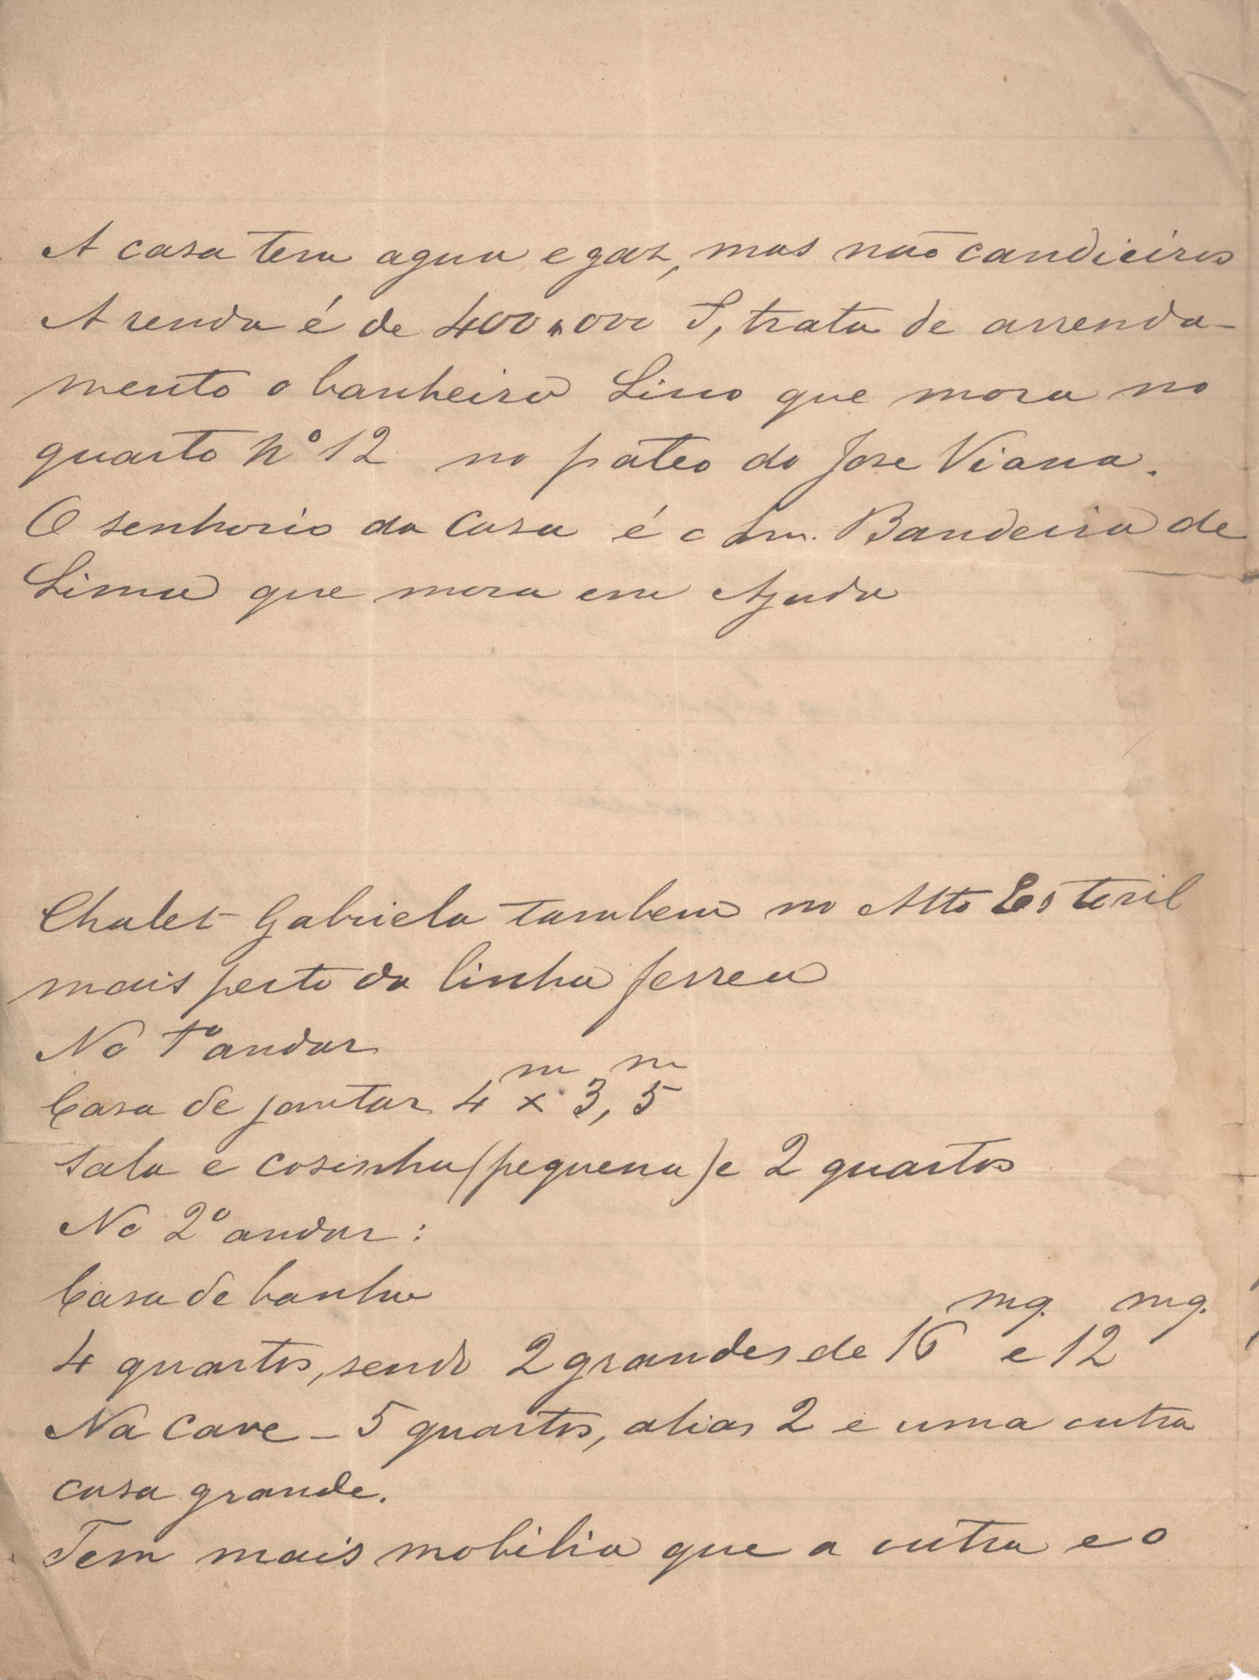 A casa tem agua e gaz, mas não candieiros
A renda é de 400.000 S, trata de arrenda-
mento o banheiro Lino que mora no
quarto Nº 12 no pateo do Jose Viana.
O senhorio da casa é o Snr. Bandeira de
Lima que mora em Ajuda
Chalet Gabriela tambem no Alto Estoril
mais perto da linha ferrea
No 1º andar
Casa de jantar 4m x 3,m5
Sala e cosinha (pequena) e 2 quartos
No 2º andar:
Casa de banho
4 quartos, sendo 2 grandes de 16 mq. e 12 mq.
Na Cave - 5 quartos, alias 2 e uma outra
casa grande.
Tem mais mobilia que a outra e o